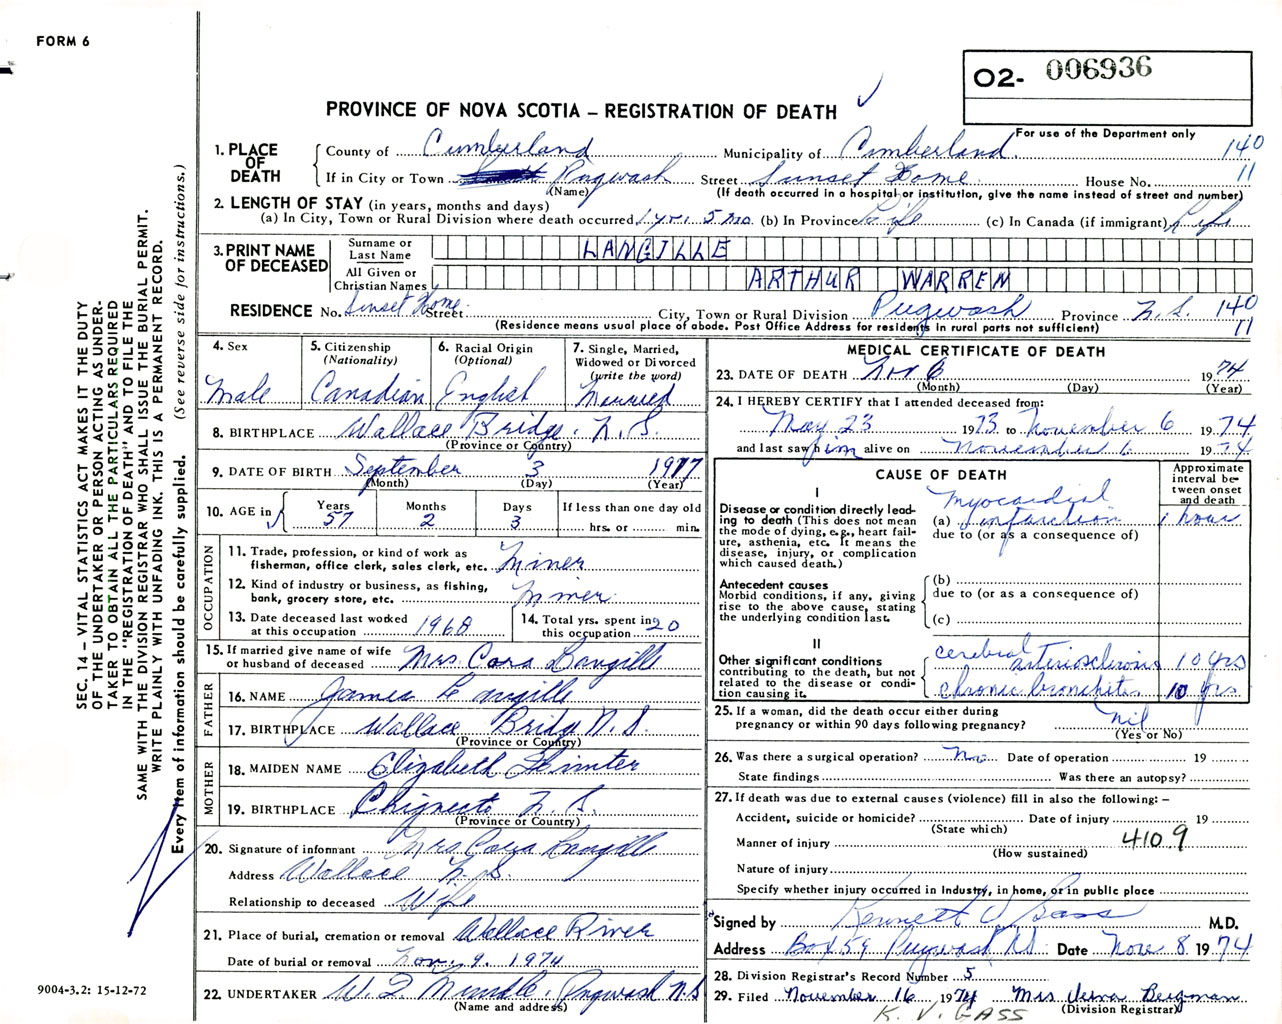 FORM 6
O2- 006936
PROVINCE OF NOVA SCOTIA – REGISTRATION OF DEATH
For use of the Department only
1. PLACE OF DEATH
County of Cumberland Municipality of Cumberland 140
If in City or Town Pugwash Street Sunset Home House No. 11
(Name) (If death occurred in a hospital or institution, give the name instead of street and number)
2. LENGTH OF STAY (in years, months and days)
(a) In City, Town or Rural Division where death occurred 1 yr. 5 mo. (b) In Province Life (c) In Canada (if immigrant) Life
3. PRINT NAME OF DECEASED
Surname or Last Name LANGILLE
All Given or Christian Names ARTHUR WARREN
RESIDENCE No. Sunset Home Street City, Town or Rural Division Pugwash Province N.S. 140
(Residence means usual place of abode. Post Office Address for residents in rural parts not sufficient) 11
4. Sex
Male
5. Citizenship (Nationality)
Canadian
6. Racial Origin (Optional)
English
7. Single, Married, Widowed or Divorced (write the word)
Married
8. BIRTHPLACE Wallace Bridge. N.S.
(Province or Country)
9. DATE OF BIRTH September 3 1917
(Month) (Day) (Year)
10. AGE in
Years 57 Months 2 Days 3
If less than one day old
hrs. or min.
OCCUPATION
11. Trade, profession, or kind of work as fisherman, office clerk, sales clerk, etc. Miner
12. Kind of industry or business, as fishing, bank, grocery store, etc. Miner
13. Date deceased last worked at this occupation 1968
14. Total yrs. spent in this occupation 20
15. If married give name of wife or husband of deceased Mrs. Cora Langille
FATHER
16. NAME James Langille
17. BIRTHPLACE Wallace Bridge N.S.
(Province or Country)
MOTHER
18. MAIDEN NAME Elizabeth
19. BIRTHPLACE Chignecto N.S.
(Province or Country)
20. Signature of informant Mrs Cora Langille
Address Wallace N.S.
Relationship to deceased Wife
21. Place of burial, cremation or removal Wallace River
Date of burial or removal Nov. 9. 1974
22. UNDERTAKER Pugwash N.S
(Name and address)
MEDICAL CERTIFICATE OF DEATH
23. DATE OF DEATH Nov 6 1974
(Month) (Day) (Year)
24. I HEREBY CERTIFY that I attended deceased from:
May 23 1973 to November 6 1974
and last saw him alive on November 6 1974
CAUSE OF DEATH
Approximate interval between onset and death
I
Disease or condition directly leading to death (This does not mean the mode of dying, e.g., heart failure, asthenia, etc. It means the disease, injury, or complication which caused death.)
(a) myocardial infarction 1 hour
due to (or as a consequence of)
Antecedent causes
Morbid conditions, if any, giving rise to the above cause, stating the underlying condition last.
(b)
due to (or as a consequence of)
(c)
II
Other significant conditions contributing to the death, but not related to the disease or condition causing it.
cerebral arteriosclerosis 10 yrs
chronic bronchitis 10 yrs
25. If a woman, did the death occur either during pregnancy or within 90 days following pregnancy? nil
(Yes or No)
26. Was there a surgical operation? No Date of operation 19
State findings Was there an autopsy?
27. If death was due to external causes (violence) fill in also the following: –
Accident, suicide or homicide? Date of injury 19
(State which)
Manner of injury 4109
(How sustained)
Nature of injury
Specify whether injury occurred in Industry, in home, or in public place
Signed by Kenneth V Gass M.D.
Address Box 59 Pugwash NS Date Nov 8 1974
28. Division Registrar's Record Number 5
29. Filed November 16 1974 Mrs Verna Bergman
(Division Registrar)
K. V. GASS
SEC. 14 – VITAL STATISTICS ACT MAKES IT THE DUTY
OF THE UNDERTAKER OR PERSON ACTING AS UNDER-
TAKER TO OBTAIN ALL THE PARTICULARS REQUIRED
IN THE "REGISTRATION OF DEATH" AND TO FILE THE
SAME WITH THE DIVISION REGISTRAR WHO SHALL ISSUE THE BURIAL PERMIT.
WRITE PLAINLY WITH UNFADING INK. THIS IS A PERMANENT RECORD.
Every item of information should be carefully supplied. (See reverse side for instructions.)
9004-3.2: 15-12-72